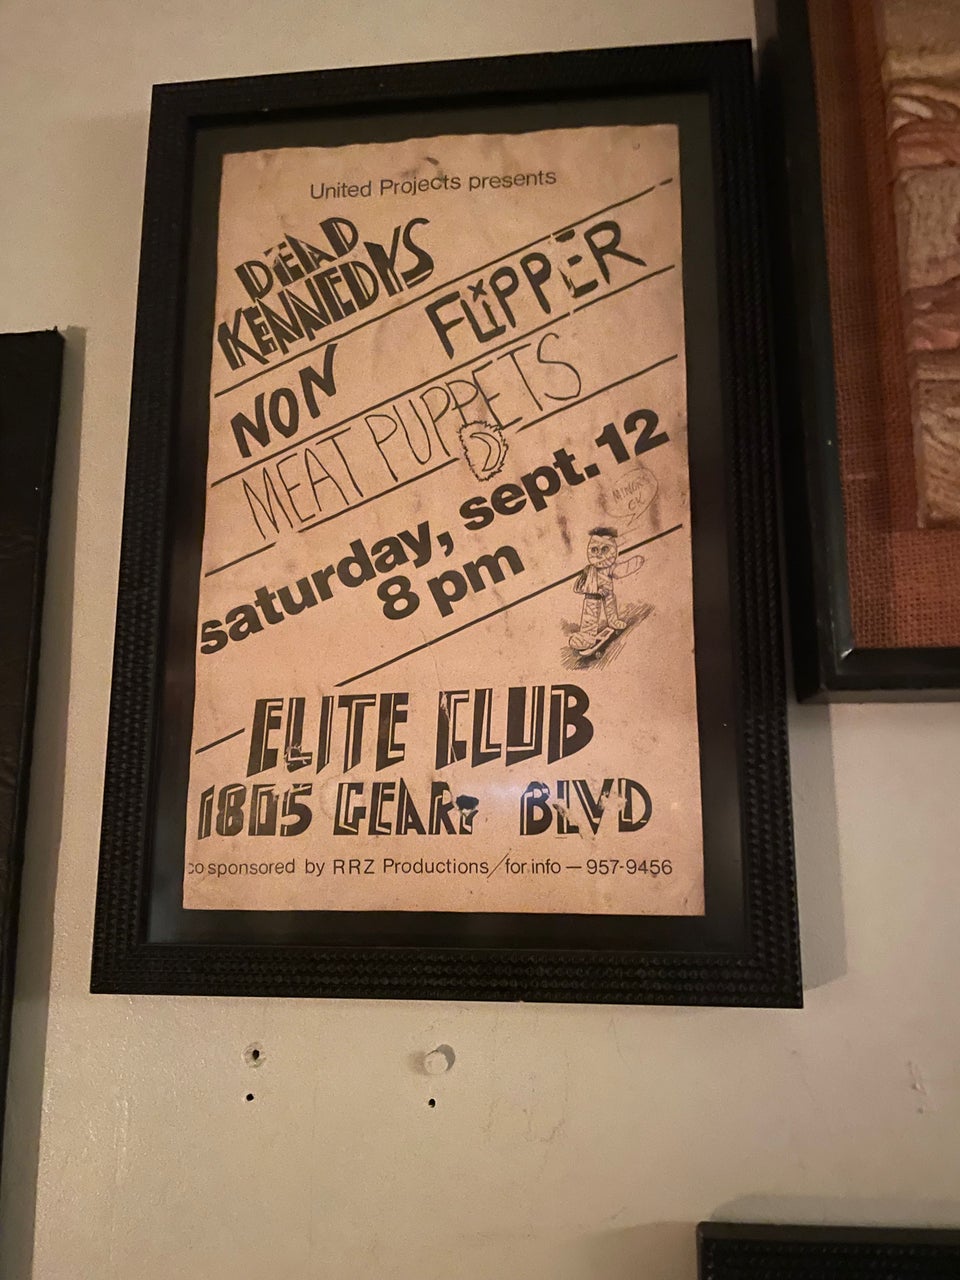 United Projects presents
DEAD
KENNEDYS
NON FLiPPER
MEAT PUPPETS
saturday, sept. 12
8 pm
MINORS
OK
ELITE CLUB
1805 GEARY BLVD
co sponsored by RRZ Productions/for info — 957-9456